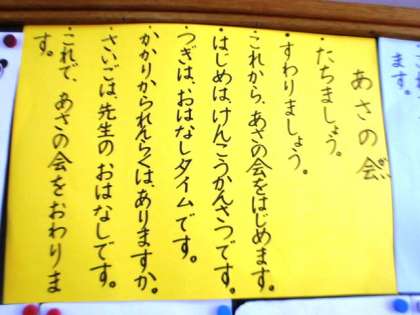 あさの会
・たちましょう。
・すわりましょう。
・これから、あさの会をはじめます。
・はじめは、けんこうかんさつです。
・つぎは、おはなしタイムです。
・かかりかられんらくは、ありますか。
・さいごは、先生のおはなしです。
・これで、あさの会をおわりま
す。
ます。